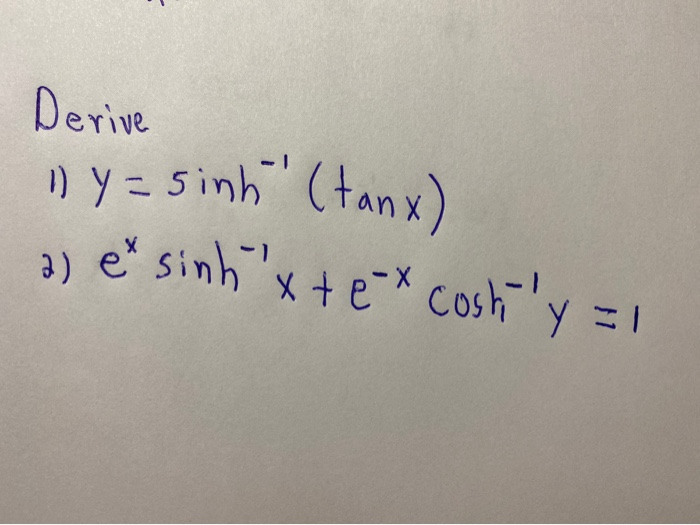 Derive
1) y = sinh⁻¹ (tan x)
2) eˣ sinh⁻¹x + e⁻ˣ cosh⁻¹y = 1